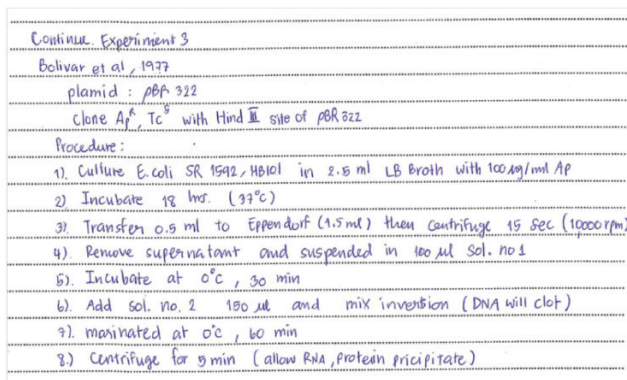 Continue. Experiment 3
Bolivar et al, 1977
plamid : pBR 322
Clone Ap^R, Tc^S with Hind III site of pBR 322
Procedure :
1). Culture E.coli SR 1592, HB101 in 2.5 ml LB Broth with 100 µg/ml Ap
2) Incubate 18 hrs. (37°C)
3). Transfer 0.5 ml to Eppendorf (1.5ml) then Centrifuge 15 sec (10000 rpm)
4). Remove supernatant and suspended in 100 µl Sol. no 1
5). Incubate at 0°C, 30 min
6). Add sol. no. 2 150 µl and mix invertion (DNA will clot)
7). marinated at 0°C, 60 min
8.) Centrifuge for 5 min (allow RNA, protein pricipitate)